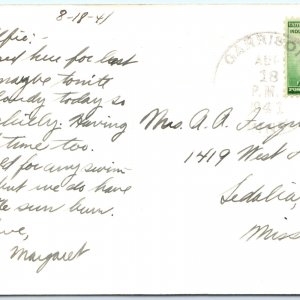 8-18-41
ffie:-
ed here for last
maybe tonite
loudy today so
chilly. Having
time too.
for any swim-
but we do have
sun burn.
ve,
Margaret
GARRISO
AU
18
P.M.
1941
Mrs. A. A. Fergu
1419 West
Sedalia,
Miss